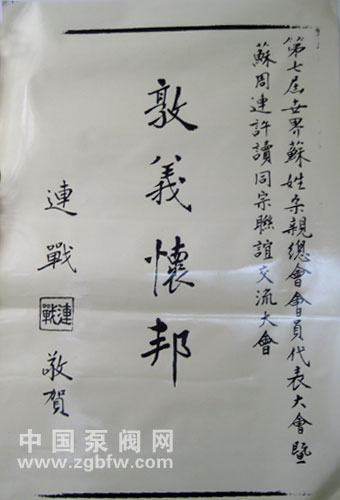 第七屆世界蘇姓宗親總會會員代表大會暨
蘇周連許讀同宗聯誼交流大會
敦義懷邦
連戰
連戰
敬賀
中国泵阀网
www.zgbfw.com